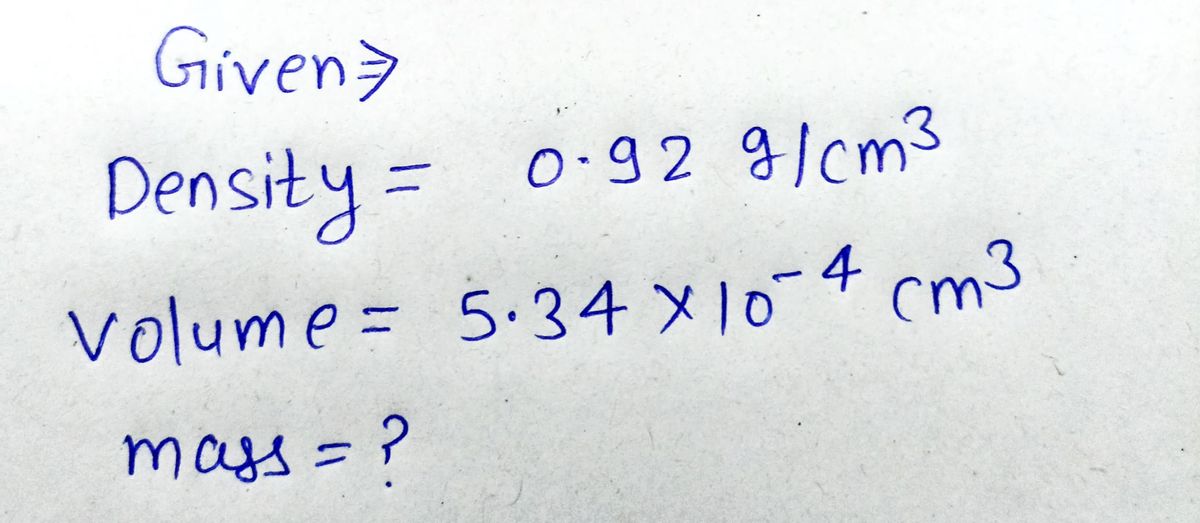 Given⇒
Density = 0.92 g/cm³
volume = 5.34 × 10⁻⁴ cm³
mass = ?